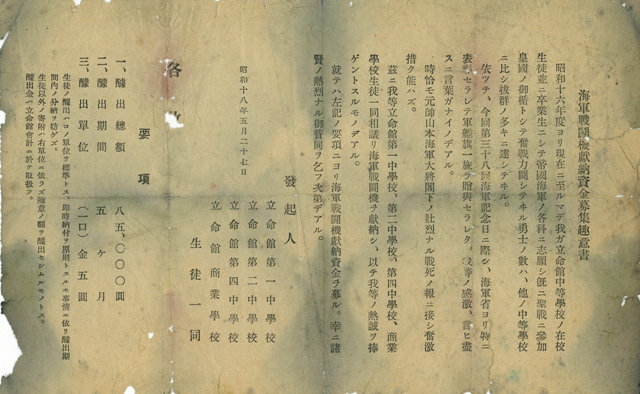 海軍戰鬪機獻納資金募集趣意書
昭和十六年度ヨリ現在ニ至ルマデ我ガ立命館中等學校ノ在校
生徒並ニ卒業生ニシテ帝國海軍ノ各科ニ志願シ既ニ聖戰ニ參加
皇國ノ御楯トシテ奮戰力鬪シテヰル勇士ノ數ハ、他ノ中等學校
ニ比シ拔群ノ多キニ達シテヰル。
依ツテ、今回第三十八回海軍記念日ニ際シ、海軍省ヨリ特ニ
表彰セラレテ軍艦旗一旒ヲ贈與セラレタ。 感激、言ヒ盡
スニ言葉ガナイノデアル。
時恰モ元帥山本海軍大將閣下ノ壯烈ナル戰死ノ報ニ接シ奮激
措ク能ハズ。
茲ニ我等立命館第一中學校、第二中學校、第四中學校、商業
學校生徒一同相議リ海軍戰鬪機ヲ獻納シ、以テ我等ノ熱誠ヲ捧
ゲントスルモノデアル。
就テハ左記ノ要項ニヨリ海軍戰鬪機獻納資金ヲ募ル。幸ニ諸
賢ノ熱烈ナル御贊同ヲ乞フ次第デアル。
昭和十八年五月二十七日
發起人
立命館第一中學校
立命館第二中學校
立命館第四中學校
立命館商業學校
生徒一同
各
要項
一、醵出總額 八五、〇〇〇圓
二、醵出期間 五ヶ月
三、醵出單位 (一口)金五圓
生徒ノ醵出ハコノ單位ヲ標準トス、卽時納付ヲ原則トスルモ事情ニ依リ醵出期
間內ノ分納ヲ妨ゲズ。
生徒以外ノ寄附ハ右單位ニ依ラズ隨意ノ額ヲ醵出セシムルモノトス。
醵出金ハ立命館會計ニ於テ取扱フ。